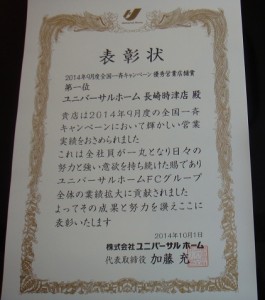 表彰状
2014年9月度全国一斉キャンペーン 優秀営業店舗賞
第一位
ユニバーサルホーム 長崎時津店 殿
貴店は2014年9月度の全国一斉
キャンペーンにおいて輝かしい営業
実績をおさめられました
これは全社員が一丸となり日々の
努力と強い意欲を持ち続けた賜であり
ユニバーサルホームFCグループ
全体の業績拡大に貢献されました
よってその成果と努力を讃えここに
表彰いたします
2014年10月1日
株式会社 ユニバーサル ホーム
代表取締役 加藤 充